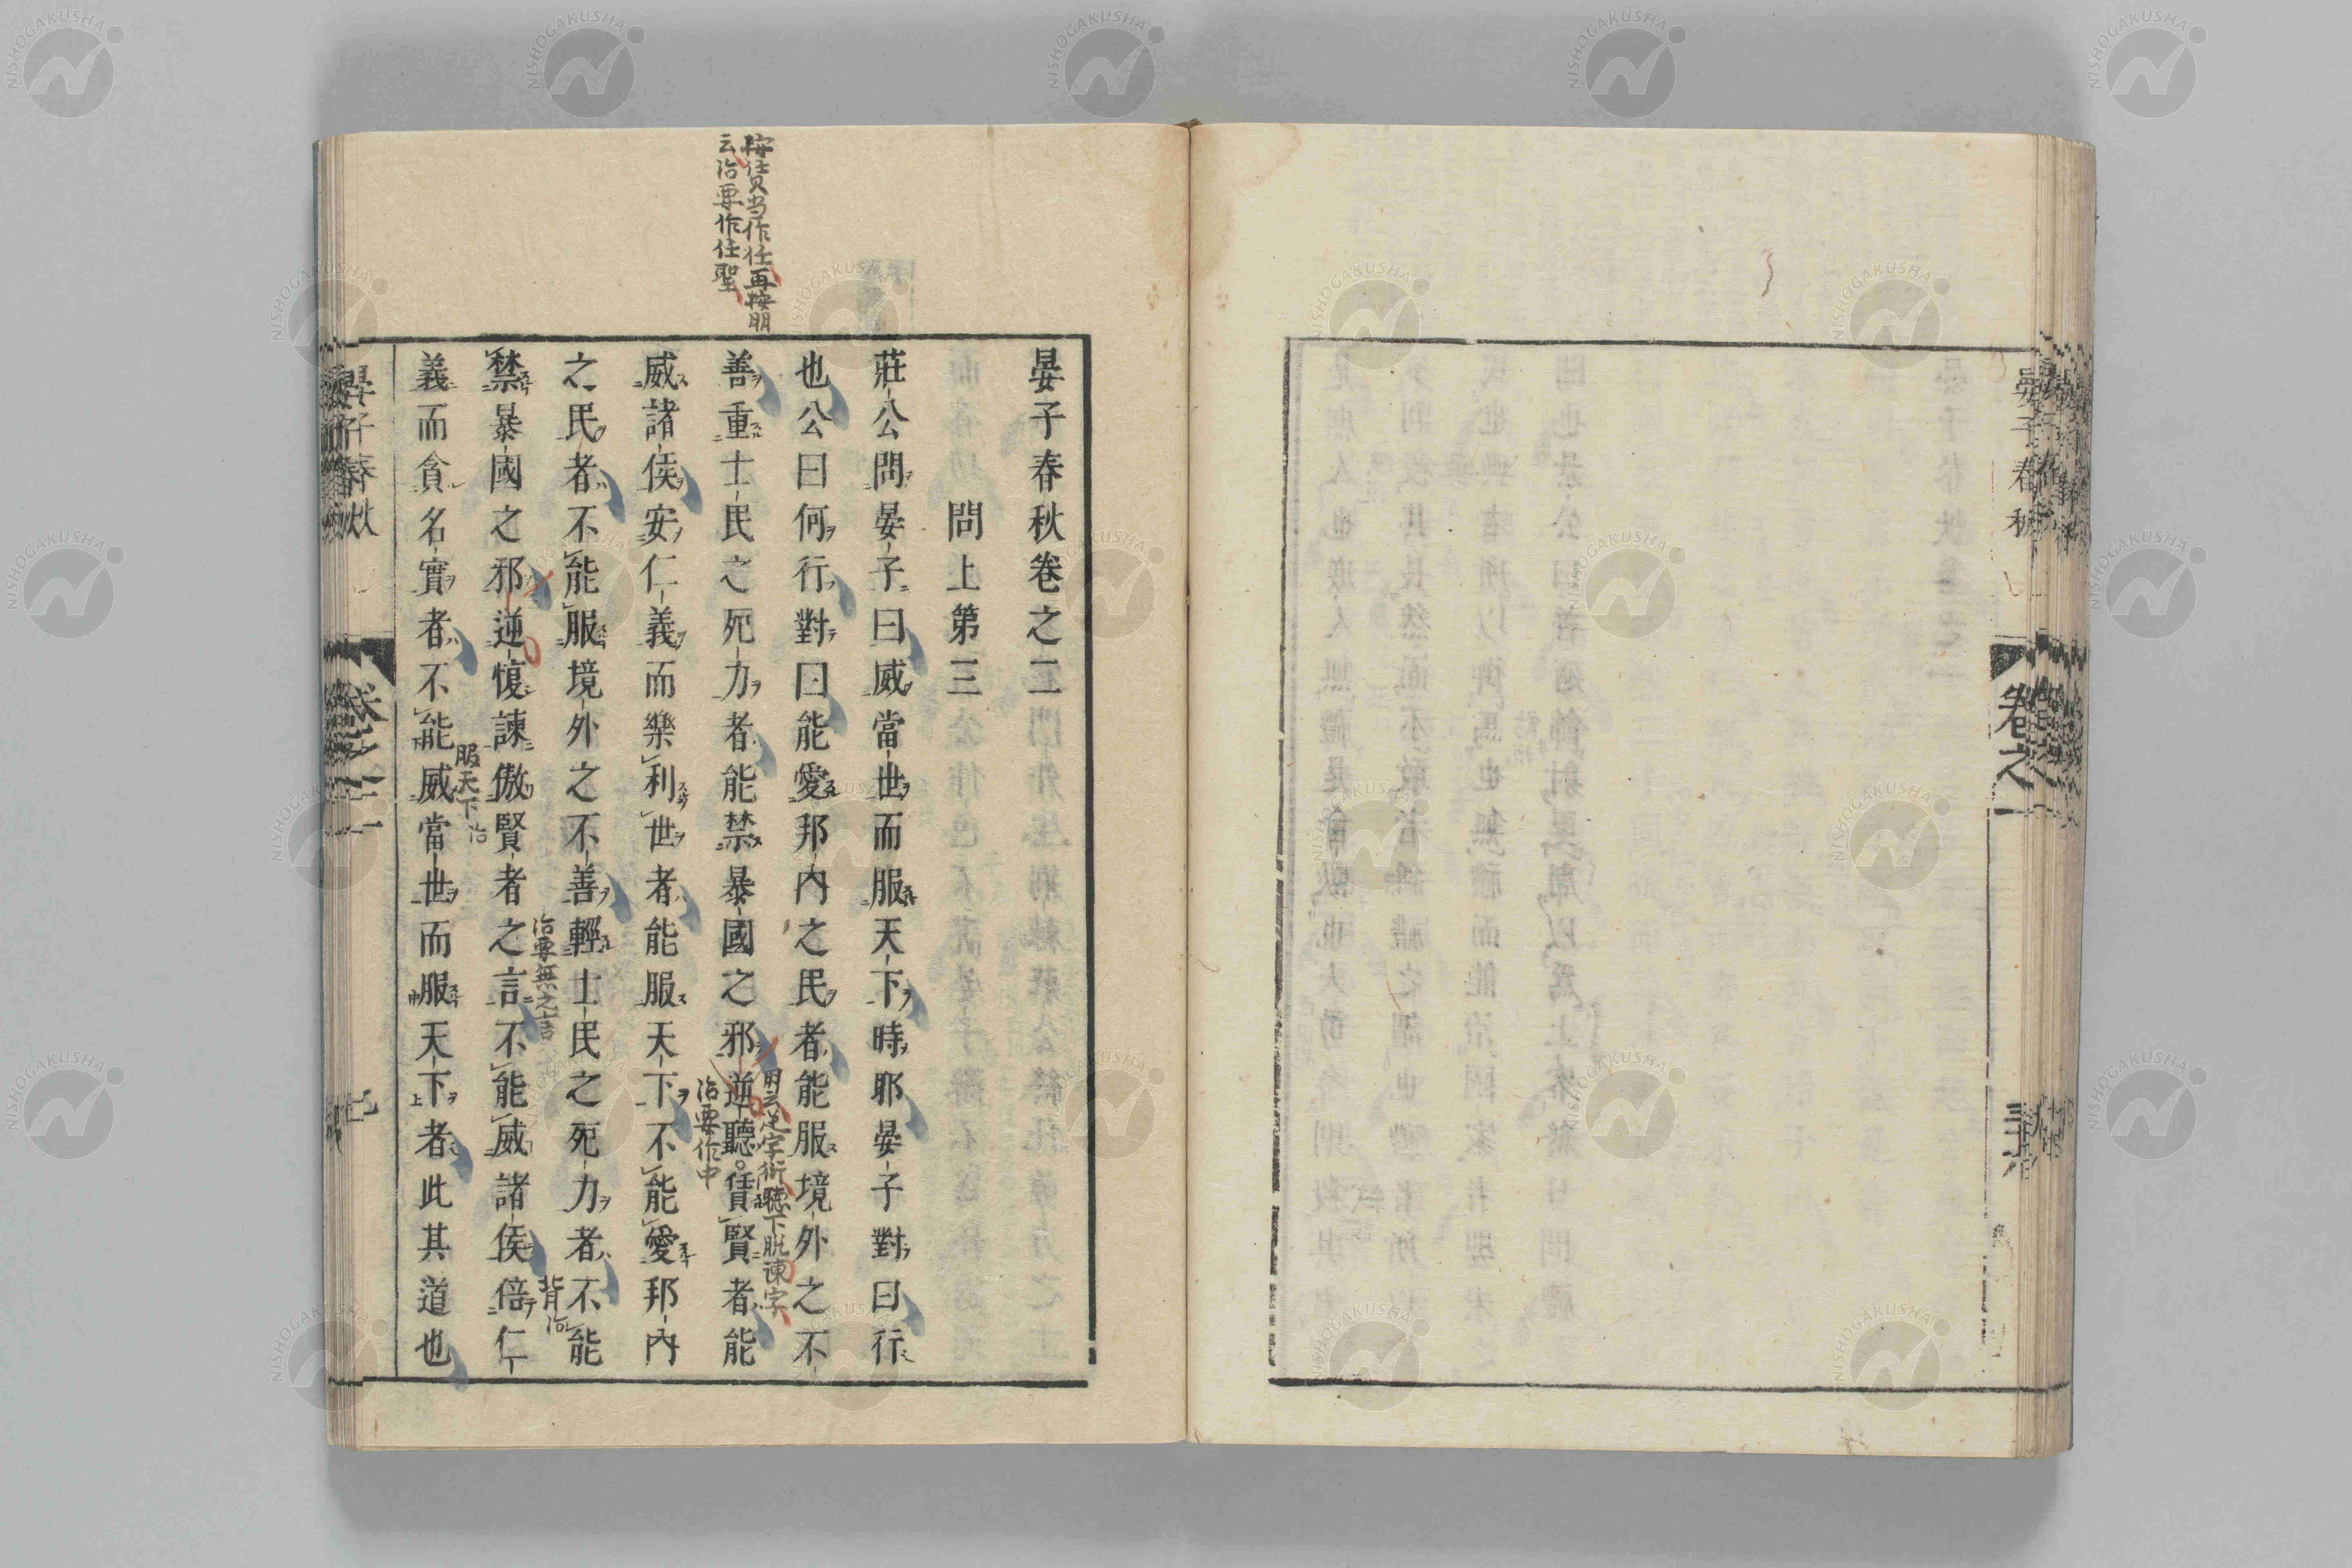 晏子春秋
卷之一
晏子春秋卷之二
問上第三
莊公問晏子曰威當世而服天下時耶晏子對曰行
也公曰何行對曰能愛邦內之民者能服境外之不
善重士民之死力者能禁暴國之邪逆聽賃賢者能
威諸侯安仁義而樂利世者能服天下不能愛邦內
之民者不能服境外之不善輕士民之死力者不能
禁暴國之邪逆愎諫傲賢者之言不能威諸侯倍仁
義而貪名實者不能威當世而服天下者此其道也
按賃当作任再按明
云治要作任聖
治要作中
治要無之言
背治
服天下治
晏子春秋
卷之二
NISHOGAKUSHA